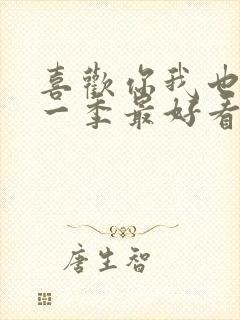 喜歡你我也
一季最好看
唐生智